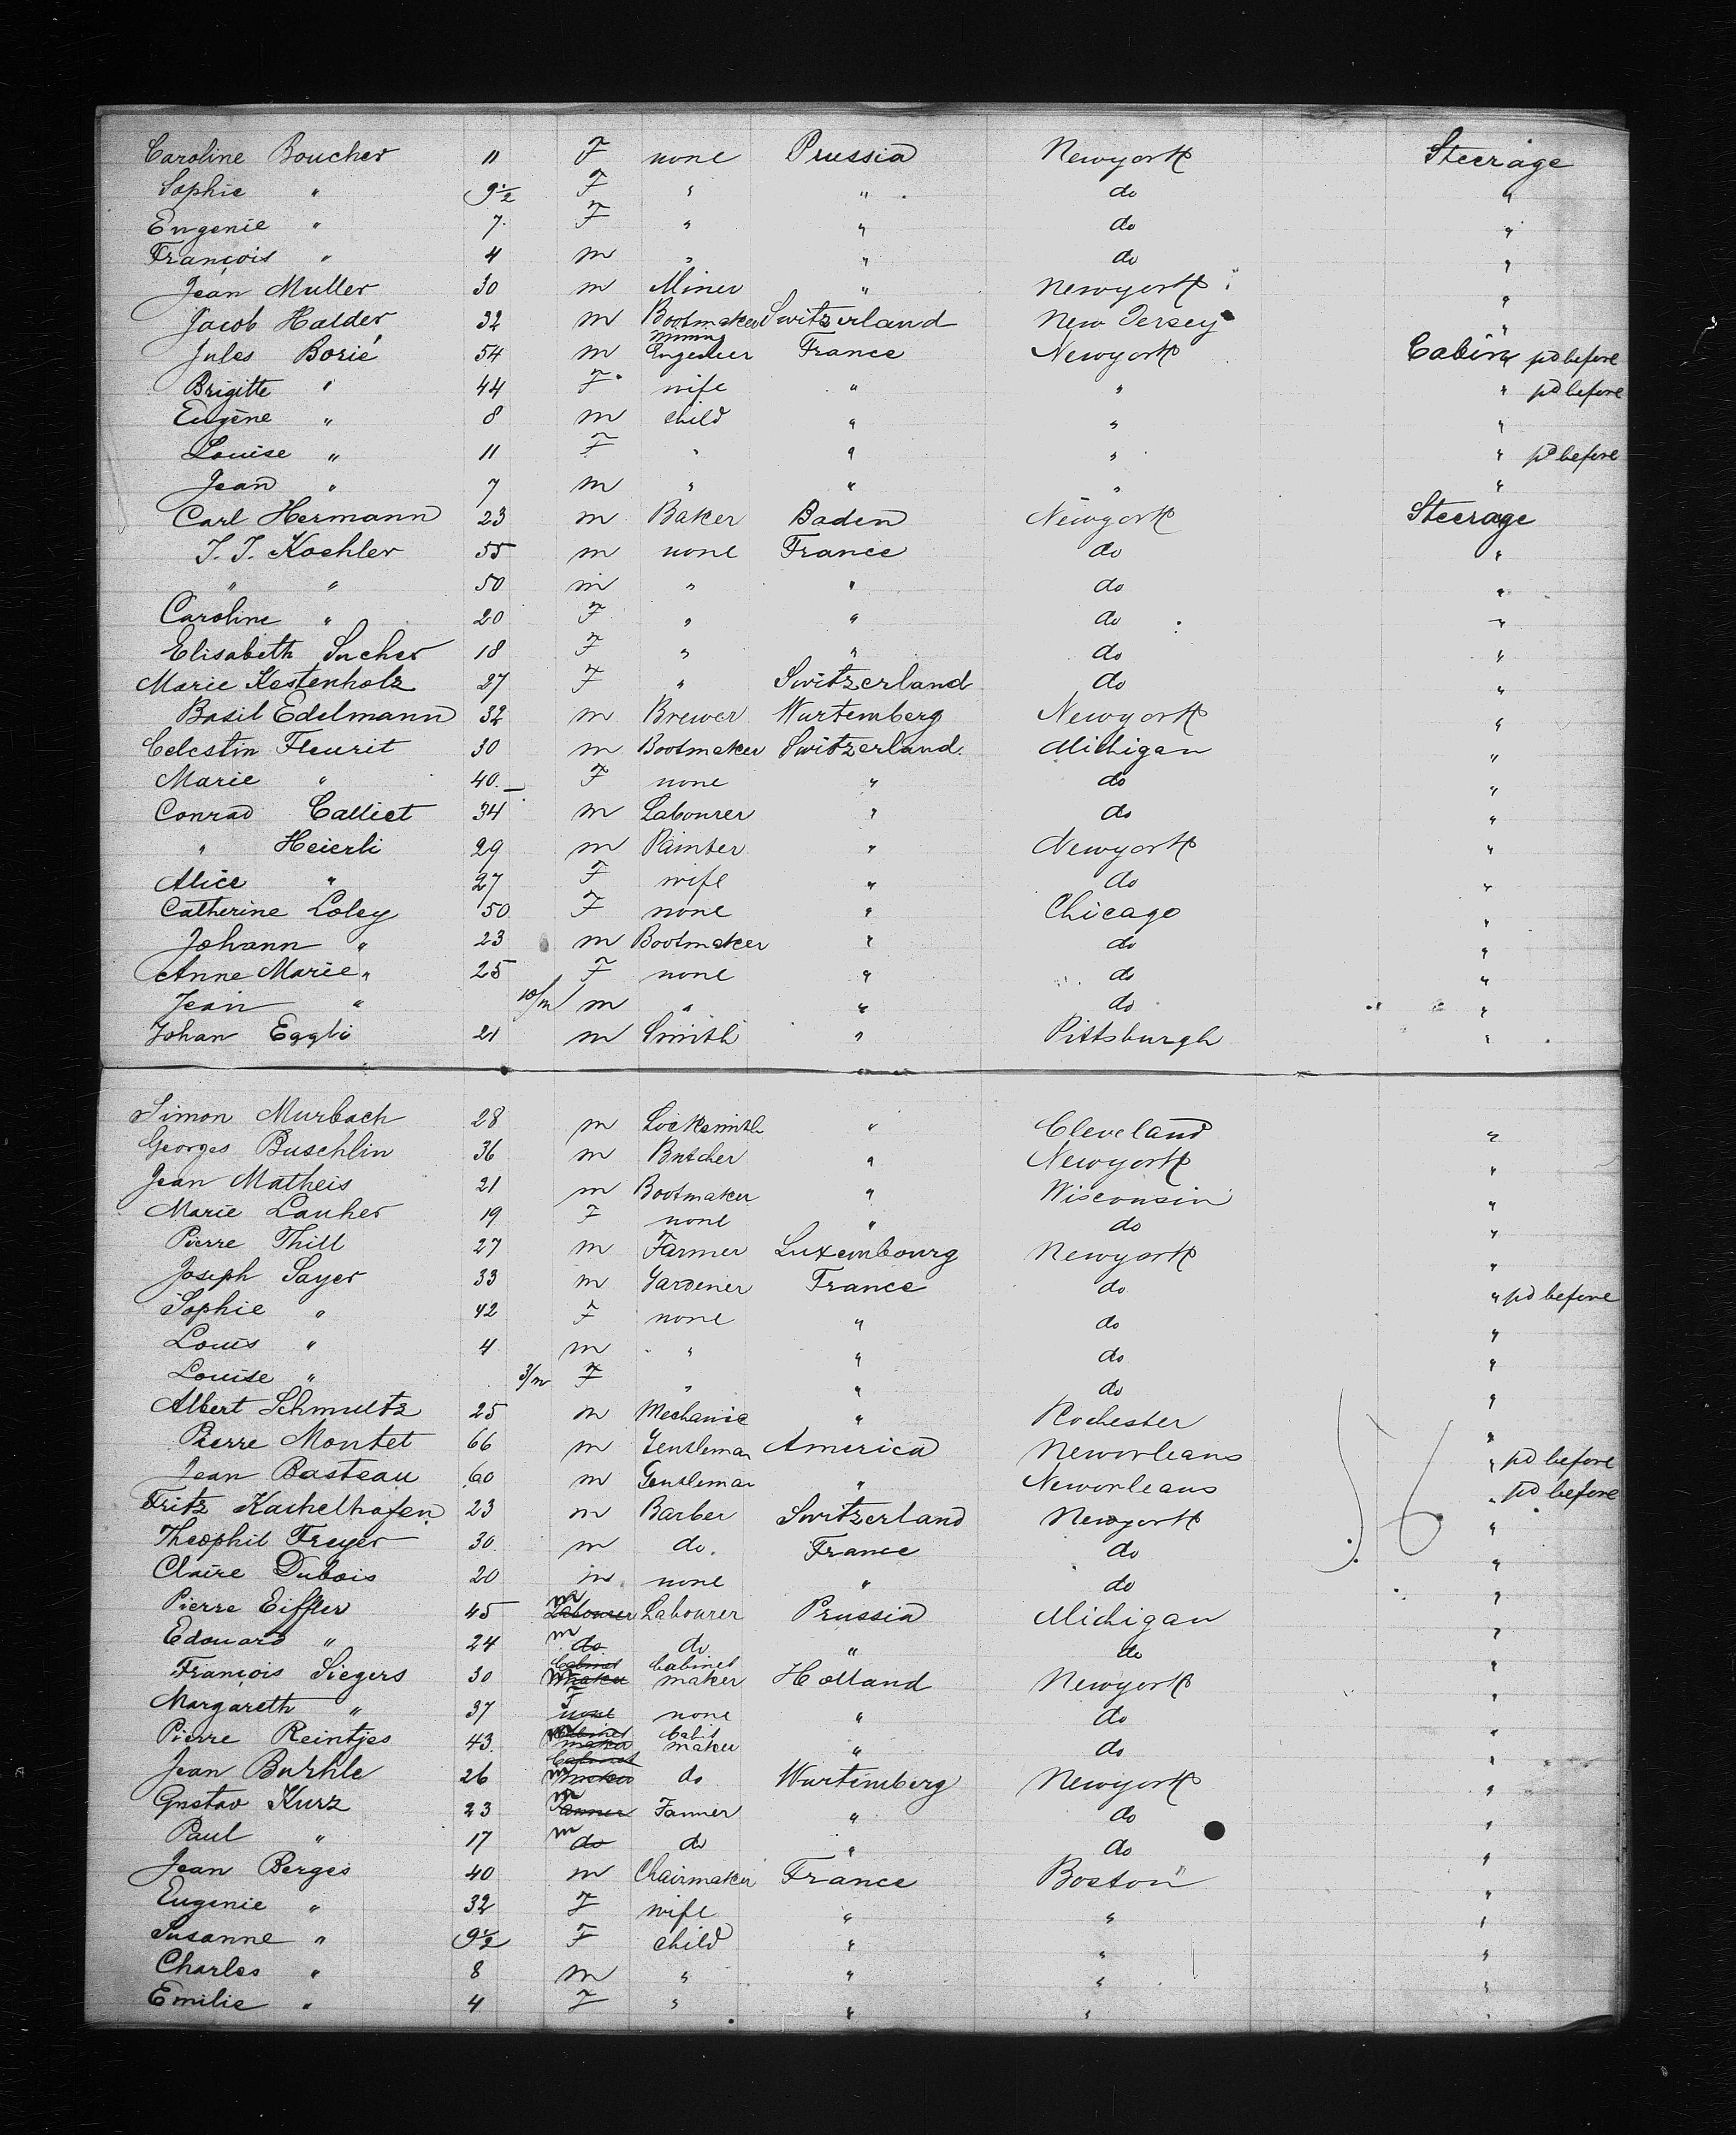 Caroline Boucher 11 F none Prussia Newyork Steerage
Sophie " 9½ F " " do "
Eugenie " 7 F " " do "
François " 4 m " " do "
Jean Muller 30 m Miner " Newyork "
Jacob Halder 32 m Bootmaker Switzerland New Jersey "
Jules Borié 54 m Mining Engeneer France Newyork Cabin " pd before
Brigitte " 44 F wife " " " pd before
Eugène " 8 m child " " "
Louise " 11 F " " " " pd before
Jean " 7 m " " " "
Carl Hermann 23 m Baker Baden Newyork Steerage
J. J. Koehler 55 m none France do "
" " 50 m " " do "
Caroline " 20 F " " do "
Elisabeth Sucher 18 F " " do "
Marie Kestenholz 27 F " Switzerland do "
Basil Edelmann 32 m Brewer Wurtemberg Newyork "
Celestin Fleurit 30 m Bootmaker Switzerland Michigan "
Marie " 40 F none " do "
Conrad Calliet 34 m Labourer " do "
" Heierli 29 m Painter " Newyork "
Alice " 27 F wife " do "
Catherine Loley 50 F none " Chicago "
Johann " 23 m Bootmaker " do "
Anne Marie " 25 F none " do "
Jean " 10/m m " " do "
Johan Eggli 21 m Smith " Pittsburgh "
Simon Murbach 28 m Locksmith " Cleveland "
Georges Buschlin 36 m Butcher " Newyork "
Jean Matheis 21 m Bootmaker " Wisconsin "
Marie Lauher 19 F none " do "
Pierre Thill 27 m Farmer Luxembourg Newyork "
Joseph Sayer 33 m Gardener France do " pd before
Sophie " 42 F none " do "
Louis " 4 m " " do "
Louise " 3/m F " " do "
Albert Schmultz 25 m Mechanic " Rochester "
Pierre Montet 66 m Gentleman America Neworleans " pd before
Jean Basteau 60 m Gentleman " Neworleans " pd before
Fritz Kachelhofen 23 m Barber Switzerland Newyork "
Theophil Freyer 30 m do. France do "
Claire Dubois 20 m none " do "
Pierre Eiffler 45 m Labourer Labourer Prussia Michigan "
Edouard " 24 m do do " do "
François Siegers 30 m Cabinet maker Cabinet maker Holland Newyork "
Margareth " 37 F none none " do "
Pierre Reintjes 43 m Cabinet maker Cabit maker " do "
Jean Burkle 26 m Cabinet maker do Wurtemberg Newyork "
Gustav Kurz 23 m Farmer Farmer " do "
Paul " 17 m do do " do "
Jean Berges 40 m Chairmaker France Boston "
Eugenie " 32 F wife " " "
Susanne " 9½ F child " " "
Charles " 8 m " " " "
Emilie " 4 F " " " "